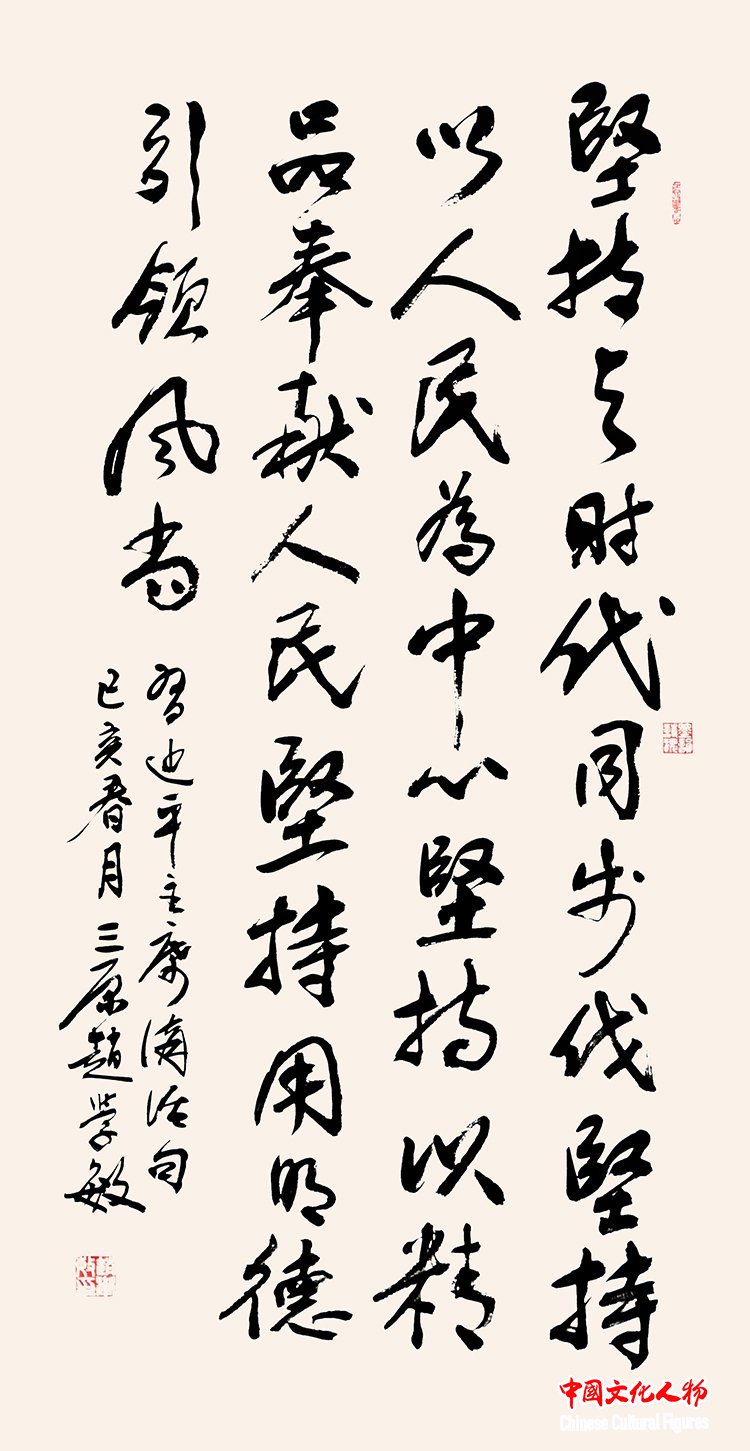 堅持与时代同步伐堅持
以人民為中心堅持以精
品奉献人民堅持用明德
引領风尚
習近平主席講话句
己亥春月三原趙学敏
中國文化人物
Chinese Cultural Figures